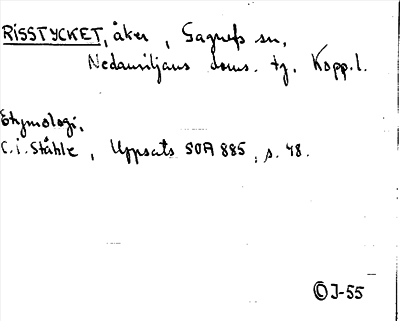 RISSTYCKET, åker, Gagnefs sn,
Nedansiljans doms. tg. Kopp.l.
Etymologi.
C.i. Ståhle, Uppsats SOA 885, s. 48.
© J-55